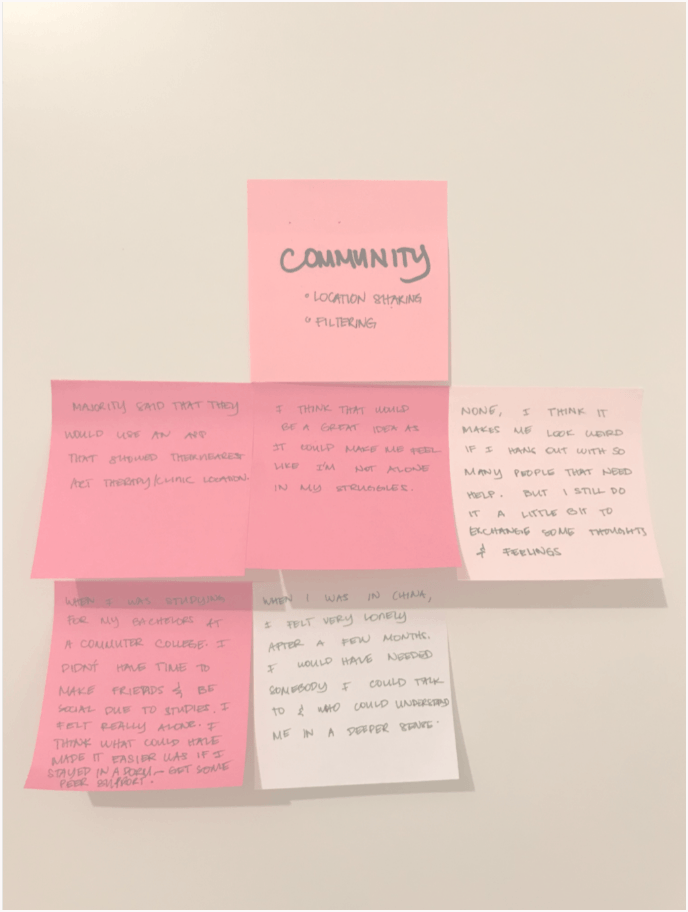 COMMUNITY
• LOCATION SHARING
• FILTERING
MAJORITY SAID THAT THEY
WOULD USE AN APP
THAT SHOWED THEIR NEAREST
ART THERAPY/CLINIC LOCATION.
I THINK THAT WOULD
BE A GREAT IDEA AS
IT COULD MAKE ME FEEL
LIKE I'M NOT ALONE
IN MY STRUGGLES.
NONE, I THINK IT
MAKES ME LOOK WEIRD
IF I HANG OUT WITH SO
MANY PEOPLE THAT NEED
HELP. BUT I STILL DO
IT A LITTLE BIT TO
EXCHANGE SOME THOUGHTS
& FEELINGS
WHEN I WAS STUDYING
FOR MY BACHELORS AT
A COMMUTER COLLEGE. I
DIDN'T HAVE TIME TO
MAKE FRIENDS & BE
SOCIAL DUE TO STUDIES. I
FELT REALLY ALONE. I
THINK WHAT COULD HAVE
MADE IT EASIER WAS IF I
STAYED IN A DORM — GET SOME
PEER SUPPORT.
WHEN I WAS IN CHINA,
I FELT VERY LONELY
AFTER A FEW MONTHS.
I WOULD HAVE NEEDED
SOMEBODY I COULD TALK
TO & WHO COULD UNDERSTAND
ME IN A DEEPER SENSE.